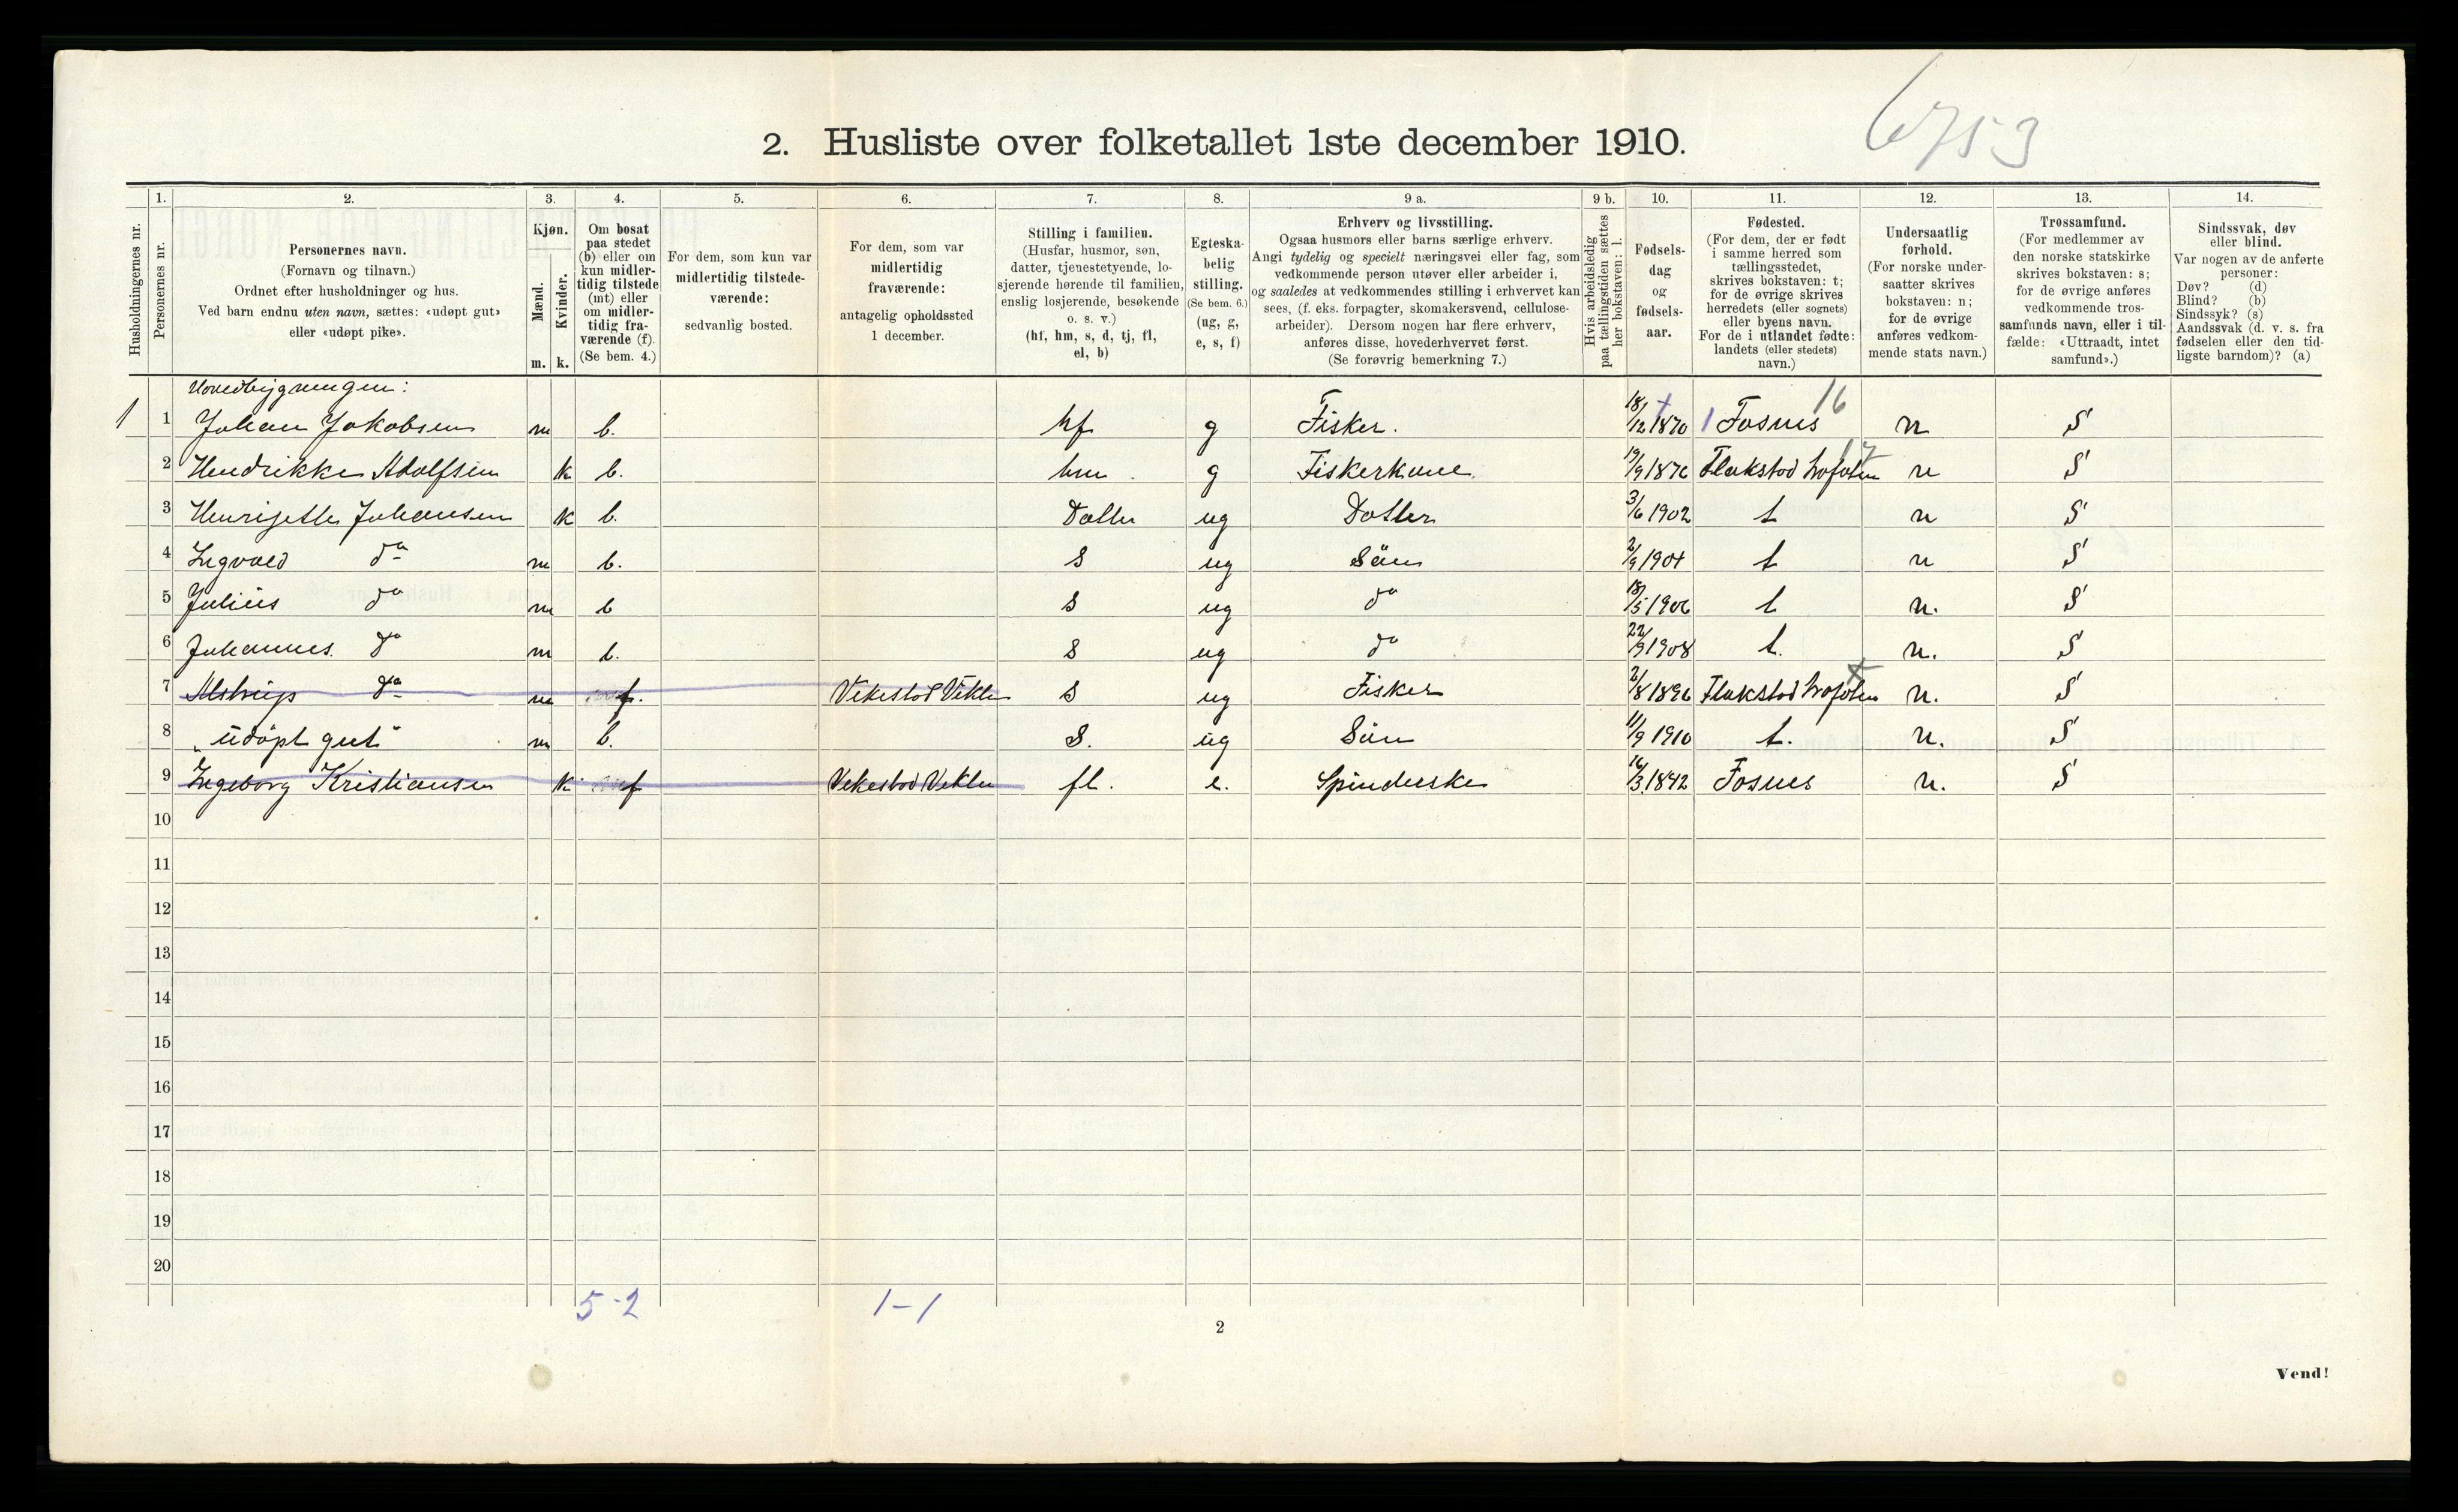 6753
2. Husliste over folketallet 1ste december 1910.
Husholdningernes nr.
1.
Personernes nr.
2.
Personernes navn.
(Fornavn og tilnavn.)
Ordnet efter husholdninger og hus.
Ved barn endnu uten navn, sættes: «udøpt gut»
eller «udøpt pike».
3.
Kjøn.
Mænd.
Kvinder.
m. k.
4.
Om bosat
paa stedet
(b) eller om
kun midler-
tidig tilstede
(mt) eller
om midler-
tidig fra-
værende (f).
(Se bem. 4.)
5.
For dem, som kun var
midlertidig tilstede-
værende:
sedvanlig bosted.
6.
For dem, som var
midlertidig
fraværende:
antagelig opholdssted
1 december.
7.
Stilling i familien.
(Husfar, husmor, søn,
datter, tjenestetyende, lo-
sjerende hørende til familien,
enslig losjerende, besøkende
o. s. v.)
(hf, hm, s, d, tj, fl,
el, b)
8.
Egteska-
belig
stilling.
(Se bem. 6.)
(ug, g,
e, s, f)
9 a.
Erhverv og livsstilling.
Ogsaa husmors eller barns særlige erhverv.
Angi tydelig og specielt næringsvei eller fag, som
vedkommende person utøver eller arbeider i,
og saaledes at vedkommendes stilling i erhvervet kan
sees, (f. eks. forpagter, skomakersvend, cellulose-
arbeider). Dersom nogen har flere erhverv,
anføres disse, hovederhvervet først.
(Se forøvrig bemerkning 7.)
9 b.
Hvis arbeidsledig
paa tællingstiden sættes
her bokstaven: l.
10.
Fødsels-
dag
og
fødsels-
aar.
11.
Fødested.
(For dem, der er født
i samme herred som
tællingsstedet,
skrives bokstaven: t;
for de øvrige skrives
herredets (eller sognets)
eller byens navn.
For de i utlandet fødte:
landets (eller stedets)
navn.)
12.
Undersaatlig
forhold.
(For norske under-
saatter skrives
bokstaven: n;
for de øvrige
anføres vedkom-
mende stats navn.)
13.
Trossamfund.
(For medlemmer av
den norske statskirke
skrives bokstaven: s;
for de øvrige anføres
vedkommende tros-
samfunds navn, eller i til-
fælde: «Uttraadt, intet
samfund».)
14.
Sindssvak, døv
eller blind.
Var nogen av de anførte
personer:
Døv? (d)
Blind? (b)
Sindssyk? (s)
Aandssvak (d. v. s. fra
fødselen eller den tid-
ligste barndom)? (a)
Hovedbygningen:
1 1 Johan Jakobsen m b. hf g Fisker. 18/12 1870 Fosnes 16 n S
2 Hendrikke Adolfsen k b. hm g Fiskerkone 19/9 1876 Flakstad Lofoten 17 n S
3 Henrijette Johansen k b. Datter ug Datter 3/6 1902 t n S
4 Ingvald do m b. s ug Sön 2/9 1904 t n S
5 Julius do m b s ug do 18/5 1906 t n. S
6 Johannes do m b. s ug do 22/9 1908 t. n. S
7 do m f. Vekestad Vikten s ug Fisker 2/8 1896 Flakstad Lofoten n. S
8 "udöpt gut" m b. S. ug Sön 11/9 1910 t. n. S
9 Ingeborg Kristiansen k f Vekestad Vikten fl. e. Spinderske 16/3 1842 Fosnes n. S
10
11
12
13
14
15
16
17
18
19
20
5-2 1-1
2
Vend!